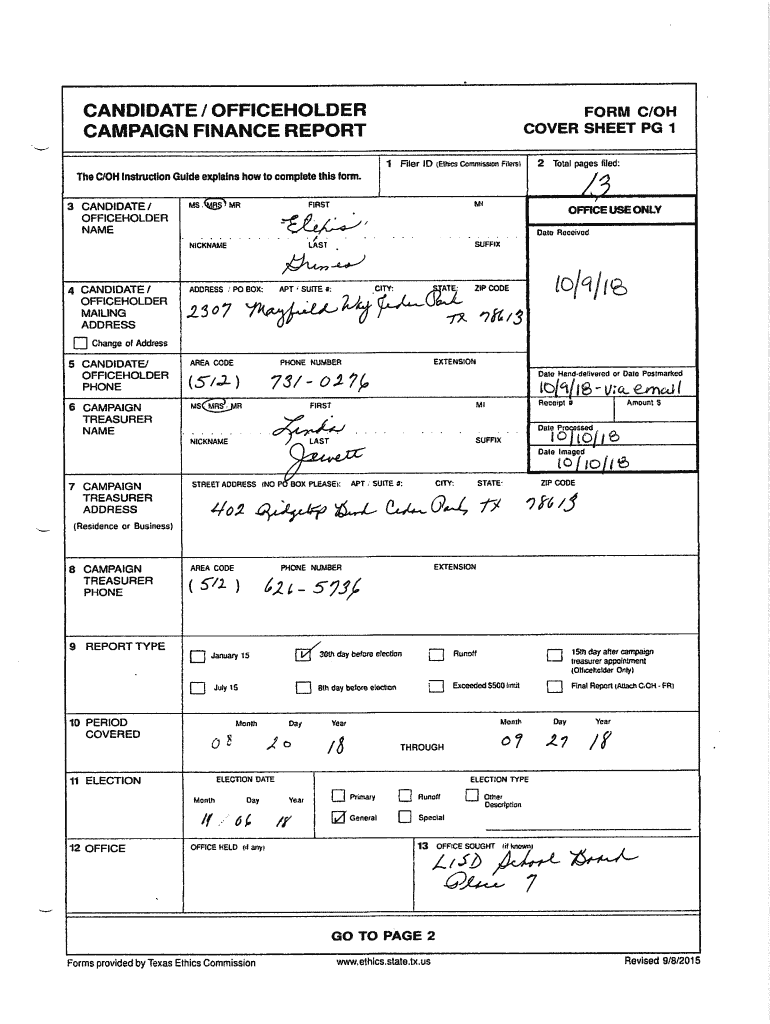 CANDIDATE / OFFICEHOLDER
CAMPAIGN FINANCE REPORT
FORM C/OH
COVER SHEET PG 1
The C/OH Instruction Guide explains how to complete this form.
1 Filer ID (Ethics Commission Filers)
2 Total pages filed:
13
3 CANDIDATE / OFFICEHOLDER NAME
MS / MRS / MR FIRST MI
NICKNAME LAST SUFFIX
Grimes
OFFICE USE ONLY
Date Received
10/9/18
4 CANDIDATE / OFFICEHOLDER MAILING ADDRESS
Change of Address
ADDRESS / PO BOX; APT / SUITE #; CITY; STATE; ZIP CODE
2307 Mayfield Wky Cedar Park
TX 78613
5 CANDIDATE/ OFFICEHOLDER PHONE
AREA CODE PHONE NUMBER EXTENSION
(512) 731-0276
Date Hand-delivered or Date Postmarked
10/9/18-via email
Receipt # Amount $
6 CAMPAIGN TREASURER NAME
MS / MRS / MR FIRST MI
Linda
NICKNAME LAST SUFFIX
Jewett
Date Processed
10/10/18
Date Imaged
10/10/18
7 CAMPAIGN TREASURER ADDRESS
(Residence or Business)
STREET ADDRESS (NO PO BOX PLEASE); APT / SUITE #; CITY; STATE; ZIP CODE
402 Ridgetop Bend Cedar Park, TX 78613
8 CAMPAIGN TREASURER PHONE
AREA CODE PHONE NUMBER EXTENSION
(512) 626-5736
9 REPORT TYPE
January 15
30th day before election
Runoff
15th day after campaign treasurer appointment (Officeholder Only)
July 15
8th day before election
Exceeded $500 limit
Final Report (Attach C/OH - FR)
10 PERIOD COVERED
Month Day Year
08 20 18
THROUGH
Month Day Year
09 27 18
11 ELECTION
ELECTION DATE
Month Day Year
11 06 18
ELECTION TYPE
Primary
Runoff
Other Description
General
Special
12 OFFICE
OFFICE HELD (if any)
13 OFFICE SOUGHT (if known)
LISD School Board
Place 7
GO TO PAGE 2
Forms provided by Texas Ethics Commission
www.ethics.state.tx.us
Revised 9/8/2015